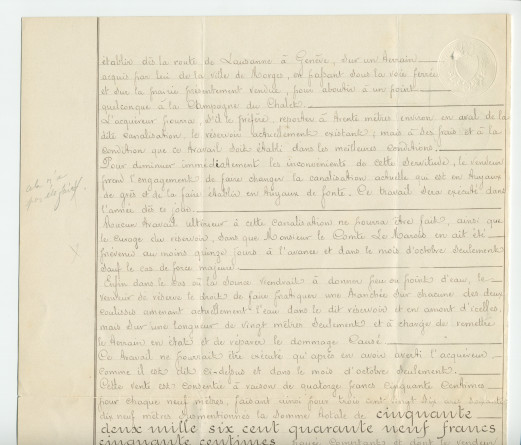 établir dès la route de Lausanne à Genève, sur un terrain
acquis par lui de la ville de Morges, en passant sous la voie ferrée
et sur la prairie présentement vendue, pour aboutir à un point
quelconque à la Campagne du Chalet.
L'acquéreur pourra, s'il le préfère, reporter à trente mètres environ en aval de la
dite canalisation, le réservoir actuellement existant; mais à ses frais et à la
condition que ce travail soit établi dans les meilleures conditions.
Pour diminuer immédiatement les inconvénients de cette servitude, le vendeur
prend l'engagement de faire changer la canalisation actuelle qui est en tuyaux
de grès et de la faire établir en tuyaux de fonte. Ce travail sera exécuté dans
l'année dès ce jour.
Aucun travail ultérieur à cette canalisation ne pourra être fait, ainsi que
le curage du réservoir, sans que Monsieur le Comte Le Marois en ait été
prévenu au moins quinze jours à l'avance et dans le mois d'octobre seulement
sauf le cas de force majeure.
Enfin dans le cas où la source viendrait à donner peu ou point d'eau, le
vendeur se réserve le droit de faire pratiquer une tranchée sur chacune des deux
coulisses amenant actuellement l'eau dans le dit réservoir et en amont d'icelles,
mais sur une longueur de vingt mètres seulement et à charge de remettre
le terrain en état et de réparer le dommage causé.
Ce travail ne pourrait être exécuté qu'après en avoir averti l'acquéreur
comme il est dit ci-dessus et dans le mois d'octobre seulement.
Cette vente est consentie à raison de quatorze francs cinquante centimes
pour chaque neuf mètres, faisant ainsi pour trois cent vingt six
dix neuf mètres susmentionnés la somme totale de cinquante
deux mille six cent quarante neuf francs
cinquante centimes payée comptant et dont le vendeur